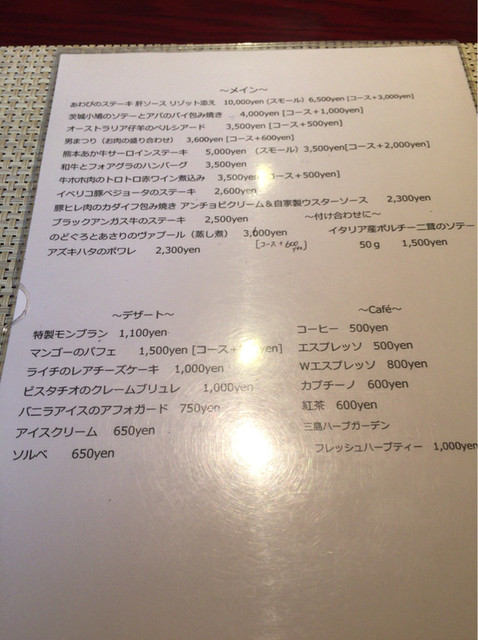 ～メイン～
あわびのステーキ 肝ソース リゾット添え 10,000yen (スモール) 6,500yen [コース+3,000yen]
茨城小鳩のソテーとアバのパイ包み焼き 4,000yen [コース+1,000yen]
オーストラリア仔羊のペルシアード 3,500yen [コース+500yen]
男まつり（お肉の盛り合わせ） 3,600yen [コース+600yen]
熊本あか牛サーロインステーキ 5,000yen (スモール) 3,500yen[コース+2,000yen]
和牛とフォアグラのハンバーグ 3,500yen
牛ホホ肉のトロトロ赤ワイン煮込み 3,500yen [コース+500yen]
イベリコ豚ベジョータのステーキ 2,600yen
豚ヒレ肉のカダイフ包み焼き アンチョビクリーム＆自家製ウスターソース 2,300yen
ブラックアンガス牛のステーキ 2,500yen
のどぐろとあさりのヴァプール（蒸し煮） 3,600yen
[コース+600yen]
アズキハタのポワレ 2,300yen
～付け合わせに～
イタリア産ポルチーニ茸のソテー
50g 1,500yen
～デザート～
特製モンブラン 1,100yen
マンゴーのパフェ 1,500yen [コース+ yen]
ライチのレアチーズケーキ 1,000yen
ピスタチオのクレームブリュレ 1,000yen
バニラアイスのアフォガード 750yen
アイスクリーム 650yen
ソルベ 650yen
～Café～
コーヒー 500yen
エスプレッソ 500yen
Wエスプレッソ 800yen
カプチーノ 600yen
紅茶 600yen
三島ハーブガーデン
フレッシュハーブティー 1,000yen